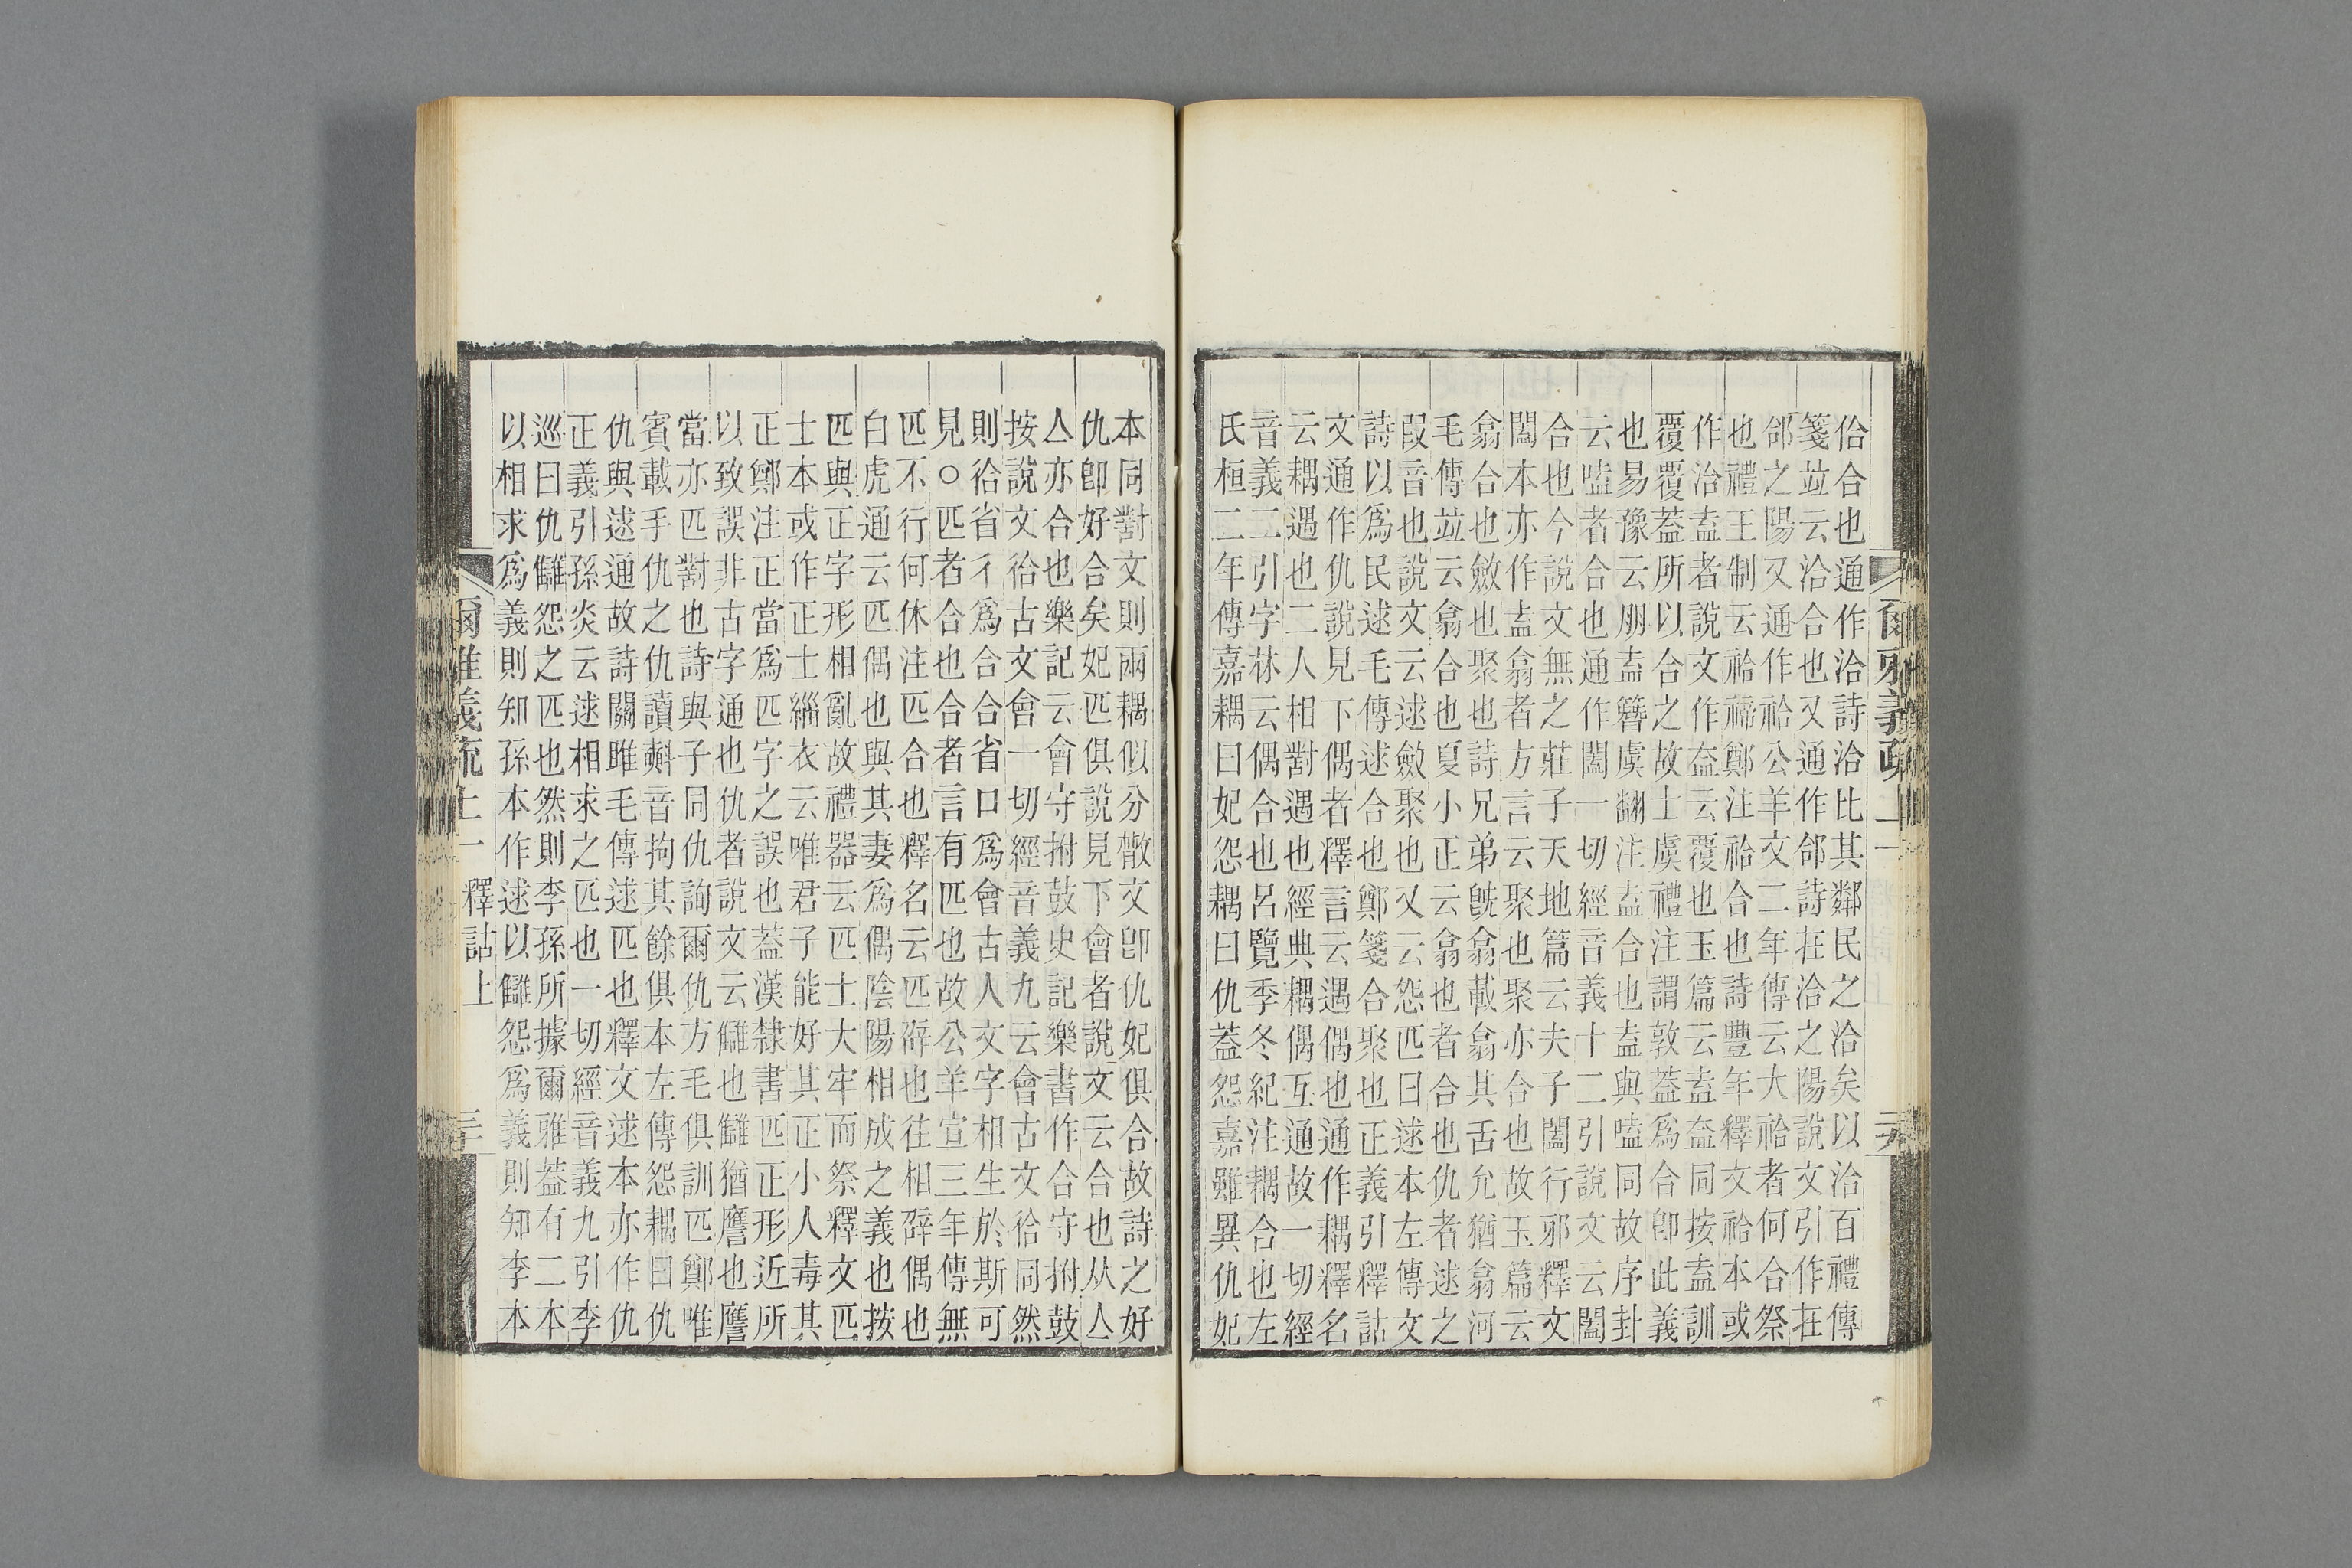 爾雅義疏上一
二九
佮合也通作洽詩洽比其鄰民之洽矣以洽百禮傳
箋竝云洽合也又通作郃詩在洽之陽說文引作在
郃之陽又通作祫公羊文二年傳云大祫者何合祭
也禮王制云祫禘鄭注祫合也詩豐年釋文祫本或
作洽盍者說文作盇云覆也玉篇云盍盇同按盍訓
覆覆葢所以合之故士虞禮注謂敦葢爲合卽此義
也易豫云朋盍簪虞翻注盍合也盍與嗑同故序卦
云嗑者合也通作闔一切經音義十二引說文云闔
合也今說文無之莊子天地篇云夫子闔行邪釋文
闔本亦作盍翕者方言云聚也聚亦合也故玉篇云
翕合也斂也聚也詩兄弟旣翕載翕其舌允猶翕河
毛傳竝云翕合也夏小正云翕也者合也仇者逑之
叚音也說文云逑斂聚也又云怨匹曰逑本左傳文
詩以爲民逑毛傳逑合也鄭箋合聚也正義引釋詁
文通作仇說見下偶者釋言云遇偶也通作耦釋名
云耦遇也二人相對遇也經典耦偶互通故一切經
音義二引字林云偶合也呂覽季冬紀注耦合也左
氏桓二年傳嘉耦曰妃怨耦曰仇葢怨嘉雖異仇妃
本同對文則兩耦似分散文卽仇妃俱合故詩之好
仇卽好合矣妃匹俱說見下會者說文云合也从亼
亼亦合也樂記云會守拊鼓史記樂書作合守拊鼓
按說文㣛古文會一切經音義九云會古文㣛同然
則㣛省彳爲合合省口爲會古人文字相生於斯可
見○匹者合也合者言有匹也故公羊宣三年傳無
匹不行何休注匹合也釋名云匹辟也往相辟偶也
白虎通云匹偶也與其妻爲偶陰陽相成之義也按
匹與正字形相亂故禮器云匹士大牢而祭釋文匹
士本或作正士緇衣云唯君子能好其正小人毒其
正鄭注正當爲匹字之誤也葢漢隸書匹正形近所
以致誤非古字通也仇者說文云讎也讎猶譍也譍
當亦匹對也詩與子同仇詢爾仇方毛俱訓匹鄭唯
賓載手仇之仇讀㪺音拘其餘俱本左傳怨耦曰仇
仇與逑通故詩關雎毛傳逑匹也釋文逑本亦作仇
正義引孫炎云逑相求之匹也一切經音義九引李
巡曰仇讎怨之匹也然則李孫所據爾雅葢有二本
以相求爲義則知孫本作逑以讎怨爲義則知李本
爾雅義疏上一
釋詁上